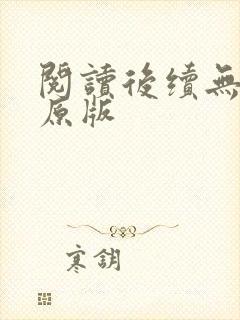 閱讀後續無
原版
寒鈅